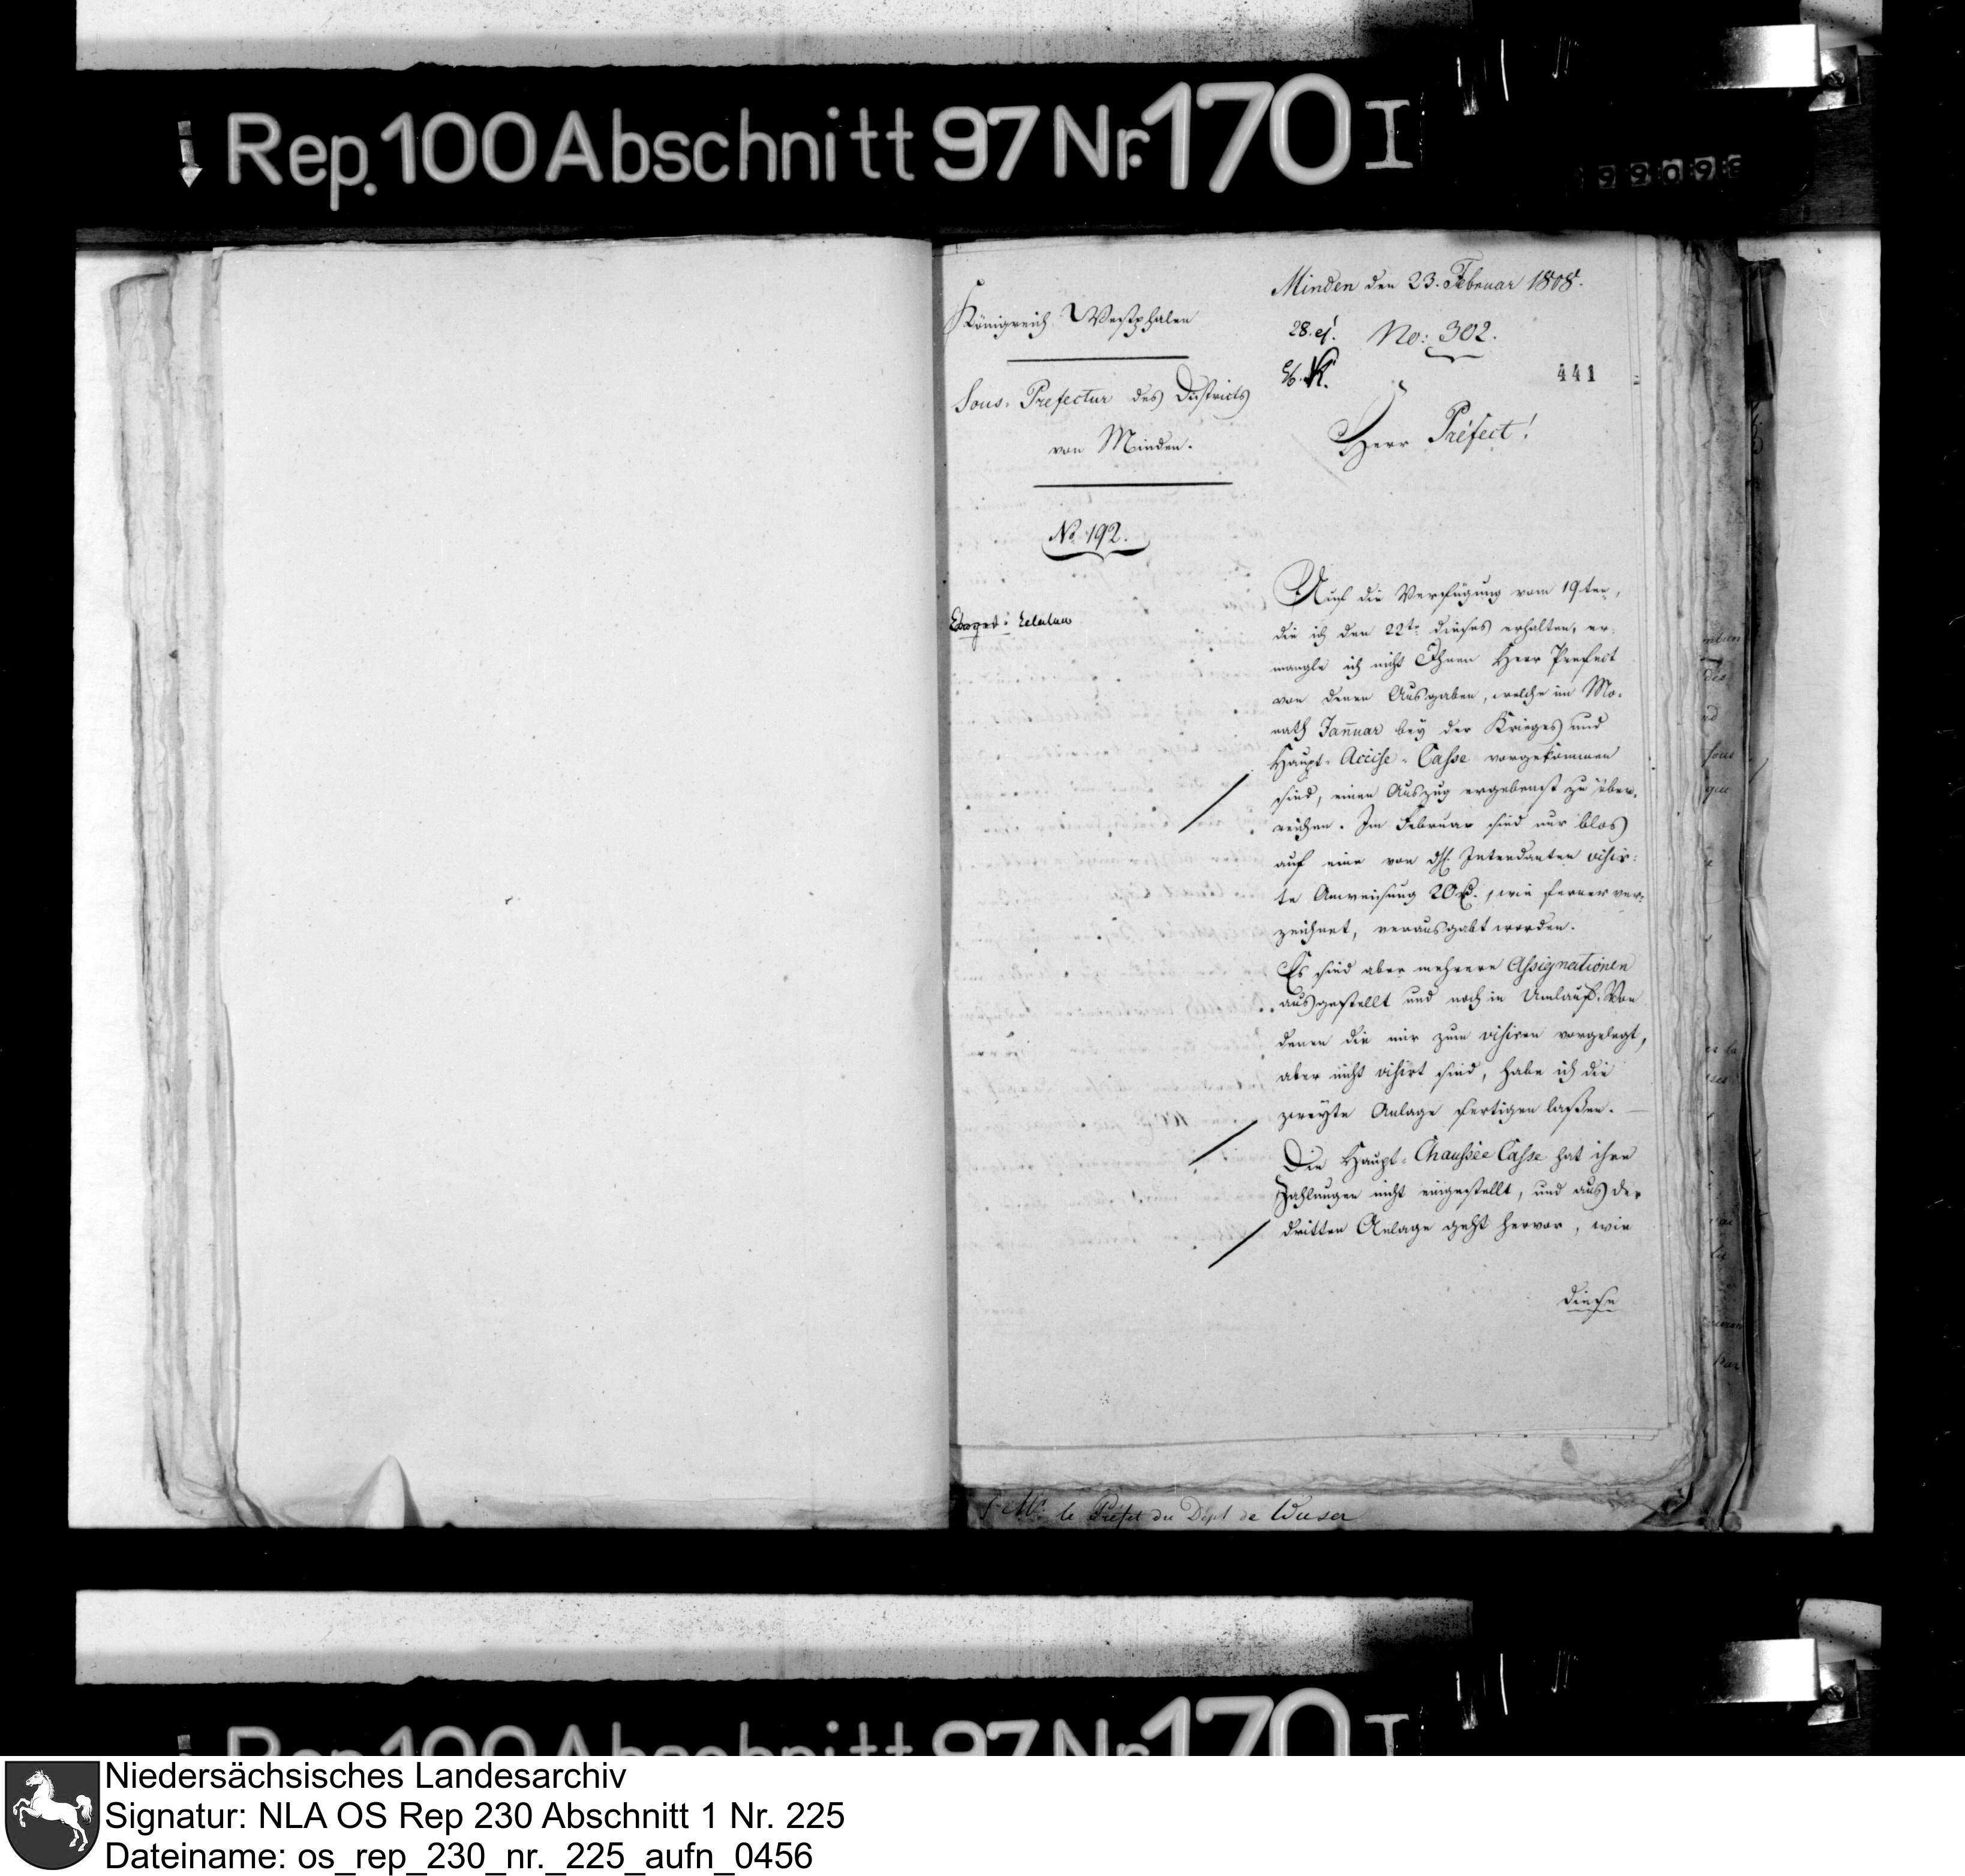 Rep. 100 Abschnitt 97 Nr. 170 I
Minden den 23. Februar 1808.
28. ej.
No: 302.
441
Königreich Westphalen
Sous-Prefectur des Districts
von Minden.
No. 192.
Herr Préfect!
Auf die Verfügung vom 19ten,
die ich den 22te dieses erhalten, er-
mangle ich nicht Ihnen Herr Prefect
von denen Ausgaben, welche im Mo-
nath Januar bey der Krieges und
Haupt-Accise-Casse vorgekommen
sind, einen Auszug ergebenst zu über-
reichen. Im Februar sind nur blos
auf eine von Intendanten visir-
te Anweisung 20, wie ferner ver-
zeichnet, verausgabt worden.
Es sind aber mehrere Assignationen
ausgestellt und noch in Umlauf. Von
denen die mir zum visiren vorgelegt,
aber nicht visirt sind, habe ich die
zweyte Anlage fertigen laßen.
Die Haupt-Chaussée Casse hat ihre
Zahlungen nicht eingestellt, und aus der
dritten Anlage geht hervor, wie
diese
le Préfet du Dépt de Weser
Rep. 100 Abschnitt 97 Nr. 170 I
Niedersächsisches Landesarchiv
Signatur: NLA OS Rep 230 Abschnitt 1 Nr. 225
Dateiname: os_rep_230_nr._225_aufn_0456